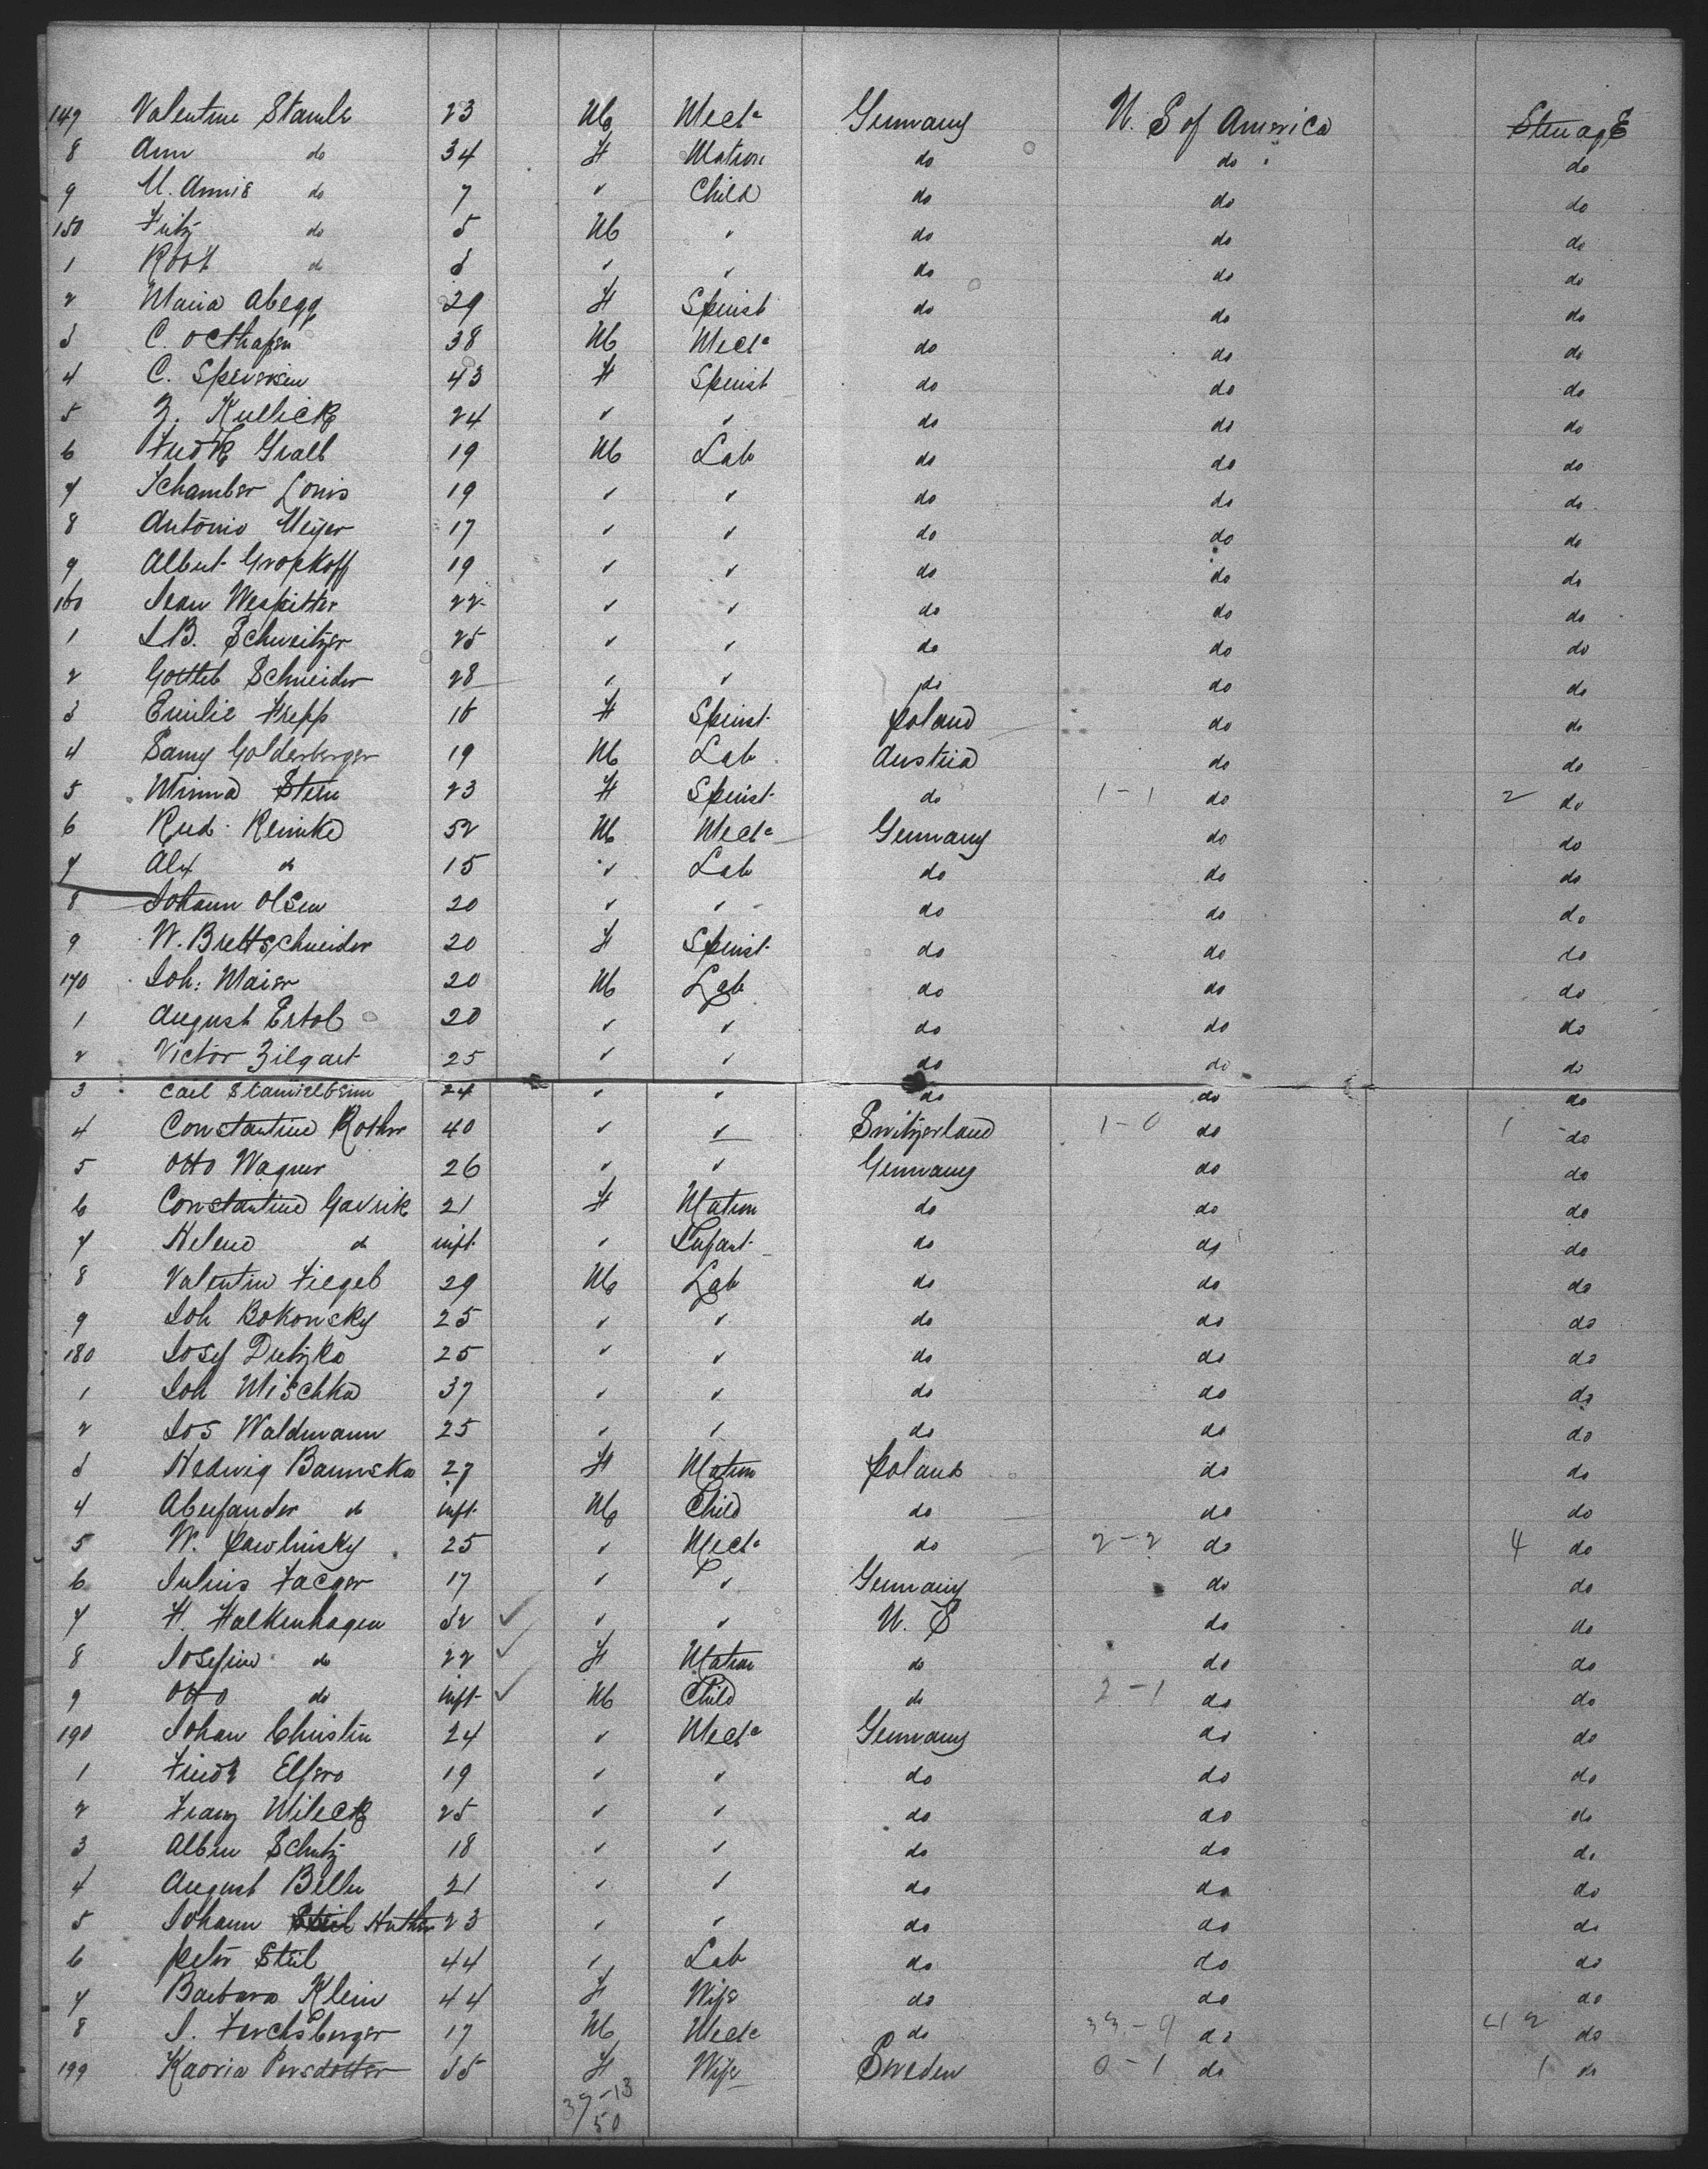 149 Valentine Stamb 23 M Mech Germany U. S of America Steerage
8 Ann do 34 F Matron do do do
9 M. Annie do 7 " Child do do do
150 Fritz do 5 M " do do do
1 Robt do 3 " " do do do
2 Maria Abegg 29 F Spinst do do do
3 C. Octhafen 38 M Mech do do do
4 C. 43 F Spinst do do do
5 Z. Kullick 24 " " do do do
6 Fredk Gralb 19 M Lab do do do
7 Schamber Louis 19 " " do do do
8 Antonio Meyer 17 " " do do do
9 Albert Gropkoff 19 " " do do do
160 Jean 22 " " do do do
1 Schweitzer 25 " " do do do
2 Gottleb Schneider 28 " " do do do
3 Emilie Frepp 18 F Spinst Poland do do
4 Samy Golderberger 19 M Lab Austria do do
5 Minna Stein 23 F Spinst do 1-1 do 2 do
6 Rud. Reinke 52 M Mech Germany do do
7 Alex do 15 " Lab do do do
8 Johann Olsen 20 " " do do do
9 W. Brettschneider 20 F Spinst do do do
170 Joh: Maier 20 M Lab do do do
1 August Ertob 20 " " do do do
2 Victor Zilgart 25 " " do do do
3 Carl 24 " " do do do
4 Constantine Rother 40 " " Switzerland 1-0 do 1 do
5 Otto Wagner 26 " " Germany do do
6 Constantine Gavrik 21 F Matron do do do
7 Helene do inft " Infant do do do
8 Valentin Fiegel 29 M Lab do do do
9 Joh Bokonsky 25 " " do do do
180 Josef Dutzko 25 " " do do do
1 Joh Mischka 37 " " do do do
2 Jos Waldmann 25 " " do do do
3 Hedwig Baunska 27 F Matron Poland do do
4 do inft M Child do do do
5 W. Pawlinsky 25 " Mech do 2-2 do 4 do
6 Julius Jaeger 17 " " Germany do do
7 H. Halkenhagen 32 ✓ " " U. S do do
8 Josefine do 22 ✓ F Matron do do do
9 Otto do inft ✓ M Child do 2-1 do do
190 Johan Christin 24 " Mech Germany do do
1 Friedr Elfero 19 " " do do do
2 Franz Mileck 25 " " do do do
3 Albin Schutz 18 " " do do do
4 August Bellu 21 " " do do do
5 Johann Huther 23 " " do do do
6 Peter Steil 44 " Lab do do do
7 Barbara Klein 44 F Wife do do do
8 J. Ferchsberger 17 M Mech do 33-9 do 42 do
199 Kaoria Persdotter 35 F Wife Sweden 0-1 do 1 do
37-13
50